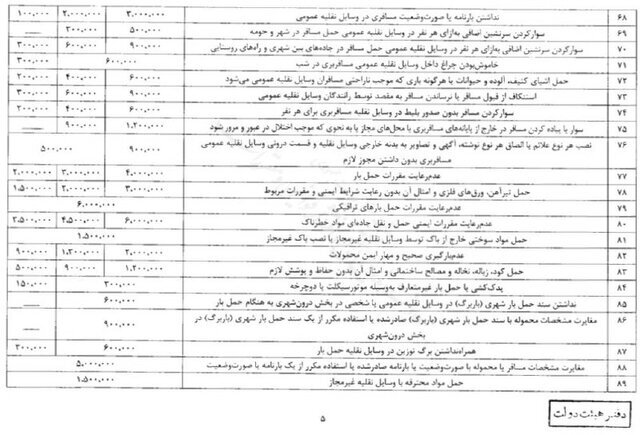 ۶۸ نداشتن بارنامه یا صورت‌وضعیت مسافری در وسایل نقلیه عمومی ۳.۰۰۰.۰۰۰ ۲.۰۰۰.۰۰۰ ۱۰۰.۰۰۰
۶۹ سوارکردن سرنشین اضافی به‌ازای هر نفر در وسایل نقلیه عمومی حمل مسافر در شهر و حومه ۵۰۰.۰۰۰ ۳۰۰.۰۰۰
۷۰ سوارکردن سرنشین اضافی به‌ازای هر نفر در وسایل نقلیه عمومی حمل مسافر در جاده‌های بین شهری و راه‌های روستایی ۹۰۰.۰۰۰ ۶۰۰.۰۰۰ ۳۰۰.۰۰۰
۷۱ خاموش‌بودن چراغ داخل وسایل نقلیه عمومی مسافربری در شب ۶۰۰.۰۰۰ ۳۰۰.۰۰۰
۷۲ حمل اشیای کثیف، آلوده و حیوانات یا هرگونه باری که موجب ناراحتی مسافران وسایل نقلیه عمومی می‌شود ۶۰۰.۰۰۰ ۴۰۰.۰۰۰ ۲۰۰.۰۰۰
۷۳ استنکاف از قبول مسافر یا نرساندن مسافر به مقصد توسط رانندگان وسایل نقلیه عمومی ۹۰۰.۰۰۰ ۶۰۰.۰۰۰ ۳۰۰.۰۰۰
۷۴ سوارکردن مسافر بدون صدور بلیط در وسایل نقلیه مسافربری برای هر نفر ۶۰۰.۰۰۰ ۴۰۰.۰۰۰ ۲۰۰.۰۰۰
۷۵ سوار یا پیاده کردن مسافر در خارج از پایانه‌های مسافربری یا محل‌های مجاز یا به نحوی که موجب اختلال در عبور و مرور شود ۱.۲۰۰.۰۰۰ ۹۰۰.۰۰۰
۷۶ نصب هر نوع علائم یا الصاق هر نوع نوشته، آگهی و تصاویر به بدنه خارجی وسایل نقلیه و قسمت درونی وسایل نقلیه عمومی مسافربری بدون داشتن مجوز لازم ۹۰۰.۰۰۰ ۵۰۰.۰۰۰
۷۷ عدم‌رعایت مقررات حمل بار ۴.۰۰۰.۰۰۰ ۳.۰۰۰.۰۰۰ ۲.۰۰۰.۰۰۰
۷۸ حمل تیرآهن، ورق‌های فلزی و امثال آن بدون رعایت شرایط ایمنی و مقررات مربوط ۳.۰۰۰.۰۰۰ ۲.۰۰۰.۰۰۰ ۱.۵۰۰.۰۰۰
۷۹ عدم‌رعایت مقررات حمل بارهای ترافیکی ۶.۰۰۰.۰۰۰
۸۰ عدم‌رعایت مقررات ایمنی حمل و نقل جاده‌ای مواد خطرناک ۶.۰۰۰.۰۰۰ ۴.۵۰۰.۰۰۰ ۳.۵۰۰.۰۰۰
۸۱ حمل مواد سوختی خارج از باک توسط وسایل نقلیه غیرمجاز یا نصب باک غیرمجاز ۱.۵۰۰.۰۰۰
۸۲ عدم‌بارگیری صحیح و مهار ایمن محمولات ۲.۰۰۰.۰۰۰ ۱.۳۰۰.۰۰۰ ۹۰۰.۰۰۰
۸۳ حمل کود، زباله، نخاله و مصالح ساختمانی و امثال آن بدون حفاظ و پوشش لازم ۱.۲۰۰.۰۰۰ ۹۰۰.۰۰۰ ۵۰۰.۰۰۰
۸۴ یدک‌کشی یا حمل بار غیرمتعارف به‌وسیله موتورسیکلت یا دوچرخه ۳۰۰.۰۰۰ ۱۵۰.۰۰۰
۸۵ نداشتن سند حمل بار شهری (باربرگ) در وسایل نقلیه عمومی یا شخصی در بخش درون‌شهری به هنگام حمل بار
۸۶ مغایرت مشخصات محموله با سند حمل بار شهری (باربرگ) صادرشده یا استفاده مکرر از یک سند حمل بار شهری (باربرگ) در بخش درون‌شهری ۹۰۰.۰۰۰
۸۷ همراه‌نداشتن برگ توزین در وسایل نقلیه حمل بار ۶۰۰.۰۰۰ ۳۰۰.۰۰۰
۸۸ مغایرت مشخصات مسافر یا محموله با صورت‌وضعیت یا بارنامه صادرشده یا استفاده مکرر از یک بارنامه یا صورت‌وضعیت ۵.۰۰۰.۰۰۰
۸۹ حمل مواد محترقه با وسایل نقلیه غیرمجاز ۱.۵۰۰.۰۰۰
۵
دفتر هیئت دولت